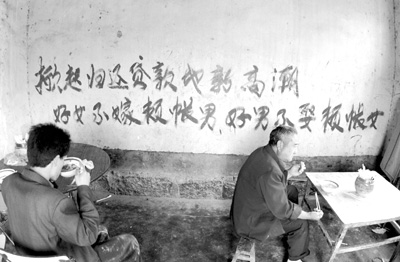 掀起归还贷款地新高潮
好女不嫁赖帐男、好男不娶赖帐女